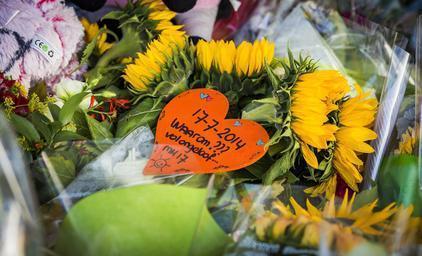 17-7-2014
Waarom..???
vol ongeloof..
MH17